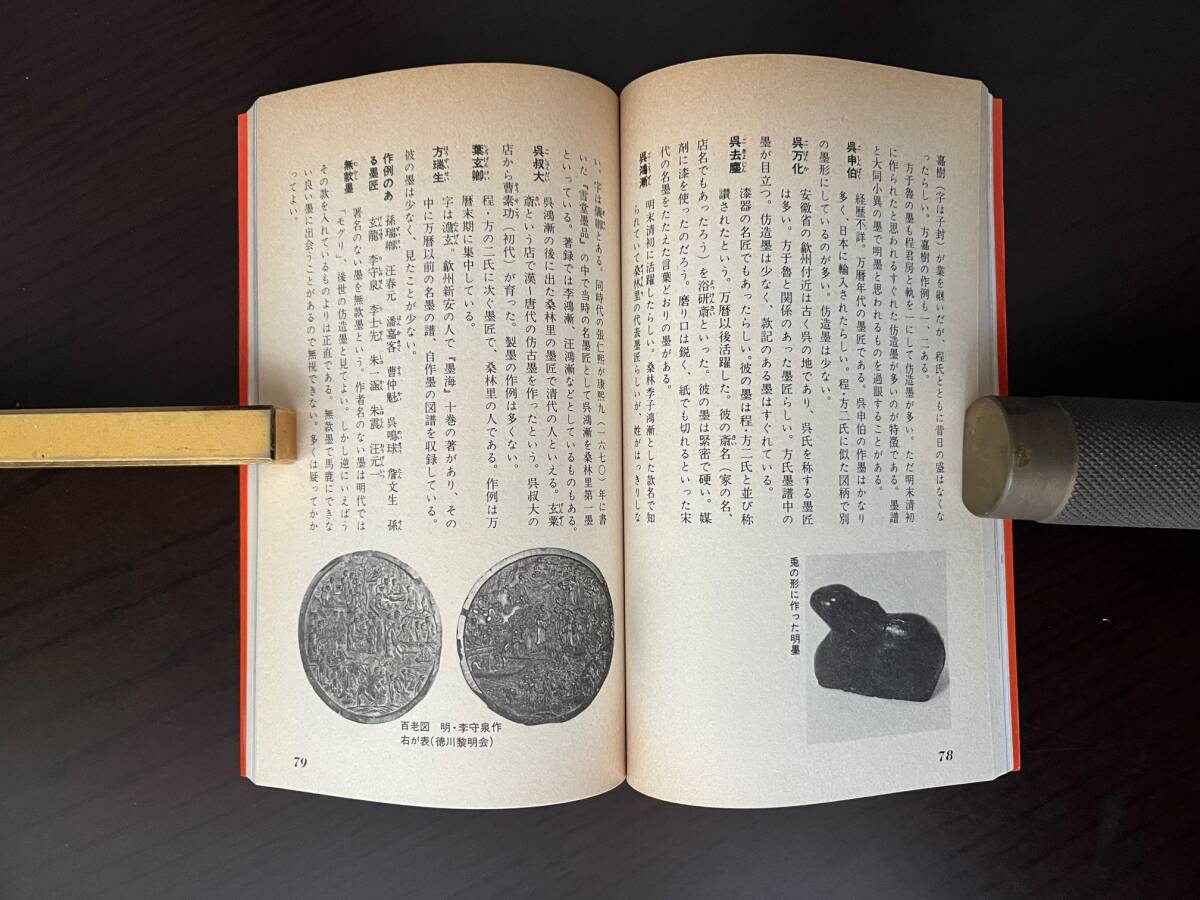 嘉樹(字は子封)が業を継いだが、程氏とともに昔日の盛はなくな
ったらしい。方嘉樹の作例も一、二ある。
方于魯の墨も程君房と軌を一にして仿造墨が多い。ただ明末清初
に作られたと思われるすぐれた仿造墨が多いのが特徴である。墨譜
と大同小異の墨で明墨と思われるものを過眼することがある。
呉申伯 経歴不詳。万暦年代の墨匠である。呉申伯の作墨はかなり
多く、日本に輸入されたらしい。程・方二氏に似た図柄で別
の墨形にしているのが多い。仿造墨は少ない。
呉万化 安徽省の歙州付近は古く呉の地であり、呉氏を称する墨匠
は多い。方于魯と関係のあった墨匠らしい。方氏墨譜中の
墨が目立つ。仿造墨は少なく、款記のある墨はすぐれている。
呉去塵 漆器の名匠でもあったらしい。彼の墨は程・方二氏と並び称
讃されたという。万暦以後活躍した。彼の斎名(家の名、
店名でもあったろう)を浴研斎といった。彼の墨は緊密で硬い。媒
剤に漆を使ったのだろう。磨り口は鋭く、紙でも切れるといった宋
代の名墨をたたえた言葉どおりの墨がある。
呉鴻漸 明末清初に活躍したらしい。桑林季子鴻漸とした款名で知
られていて桑林里の代表墨匠らしいが、姓がはっきりしな
兎の形に作った明墨
78
い、字は儀卿とある。同時代の張仁熙が康熙九(一六七〇)年に書
いた『雪堂墨品』の中で当時の名墨匠として呉鴻漸を桑林里第一墨
といっている。著録では李鴻漸、汪鴻漸などとしているものもある。
呉叔大 呉鴻漸の後に出た桑林里の墨匠で清代の人といえる。玄粟
斎という店で漢―唐代の仿古墨を作ったという。呉叔大の
店から曹素功(初代)が育った。製墨の作例は多くない。
葉玄卿 程・方の二氏に次ぐ墨匠で、桑林里の人である。作例は万
暦末期に集中している。
方瑞生 字は澹玄。歙州新安の人で『墨海』十巻の著があり、その
中に万暦以前の名墨の譜、自作墨の図譜を収録している。
彼の墨は少なく、見たことが少ない。
作例のあ 孫瑞卿 汪春元 潘嘉客 曹仲魁 呉鳴球 詹文生 孫
る墨匠 玄龍 李守泉 李士先 朱一涵 朱震 汪元一
無款墨 著名のない墨を無款墨という。作者名のない墨は明代では
「モグリ」、後世の仿造墨と見てよい。しかし逆にいえばう
その款を入れているものよりは正直である。無款墨で馬鹿にできな
い良い墨に出会うことがあるので無視できない。多くは疑ってかか
ってよい。
百老図 明・李守泉作
右が表(徳川黎明会)
79